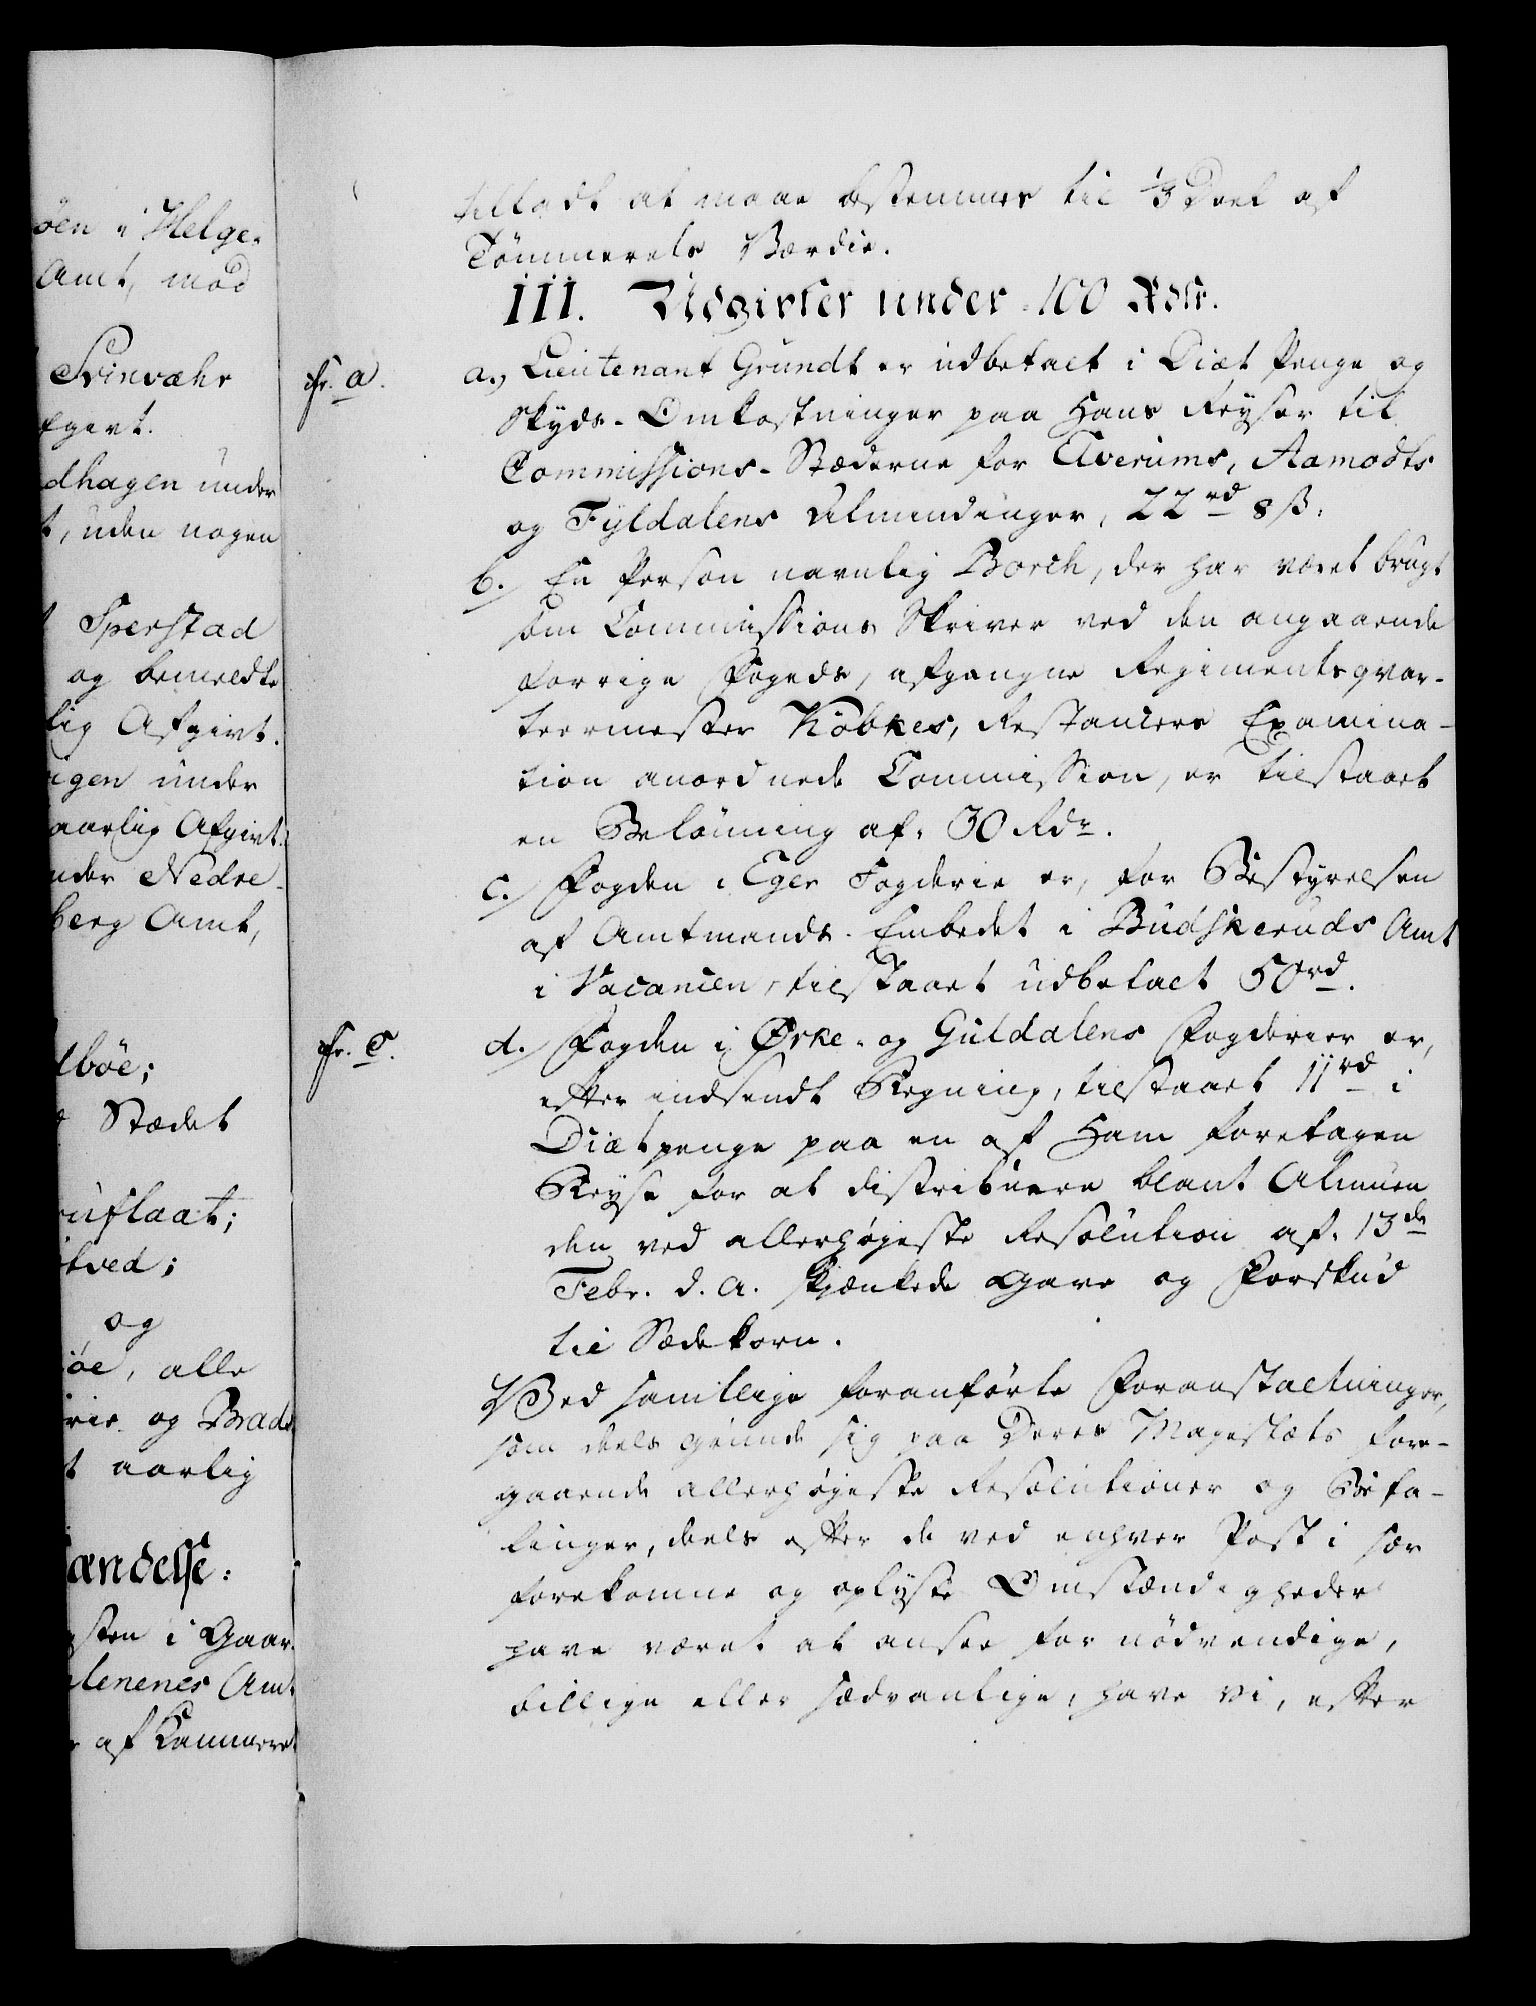 öen i Helge-
Amt, mod
Svinvæhr
fgivt.
dhagen under
t, uden nogen
Sperstad
og bemeldte
lig Afgivt.
igen under
aarlig Afgivt.
nder Nedre-
berg Amt,
lböe;
Stædet
ruflaat;
tved;
og
öe, alle
rie og Brads
t aarlig
andelse:
sten i Gaar-
lenenes Amt
af Kammeret
tilladt at maae bestemmes til 1/3 Deel af
Tömmerets Værdie.
III. Udgivter under 100 Rdlr.
fr. a. a.) Lieutenant Grundt er udbetalt i Diæt Penge og
Skyds-Omkostninger paa Hans Reyser til
Commissions-Stæderne for Elverums, Aamodts
og Tyldalens Almindinger, 22 rd 8 ß.
b.) En Person navnlig Borch, der har været brugt
som Commissions Skriver ved den angaaende
forrige Fogeds, afgangne Regimentsqvar-
teermester Köbkes, Restancers Examina-
tion anordnede Commission, er tilstaaet
en Belönning af 30 Rdr.
c.) Fogden i Eger Fogderie er, for Bestyrelsen
af Amtmands-Embedet i Budskeruds Amt
i Vacancen, tilstaaet udbetalt 50 rd.
fr. c. d.) Fogden i Ørke- og Guldalens Fogderier er,
efter indsendt Regning, tilstaaet 11 rd i
Diætpenge paa en af Ham foretagen
Reyse for at distribuere blant Almuen
den ved allerhöjeste Resolution af 13de
Febr. d. A. skjænkede Gave og Forskud
til Sædekorn.
Ved samtlige foranförte Foranstaltninger,
som deels grunde sig paa Deres Majestæts fore-
gaaende allerhöjeste Resolutioner og Befa-
linger, deels efter de ved enhver Post i sær
forekomne og oplyste Omstændigheder
have været at ansee for nödvendige,
billige eller sædvanlige, have vi, efter